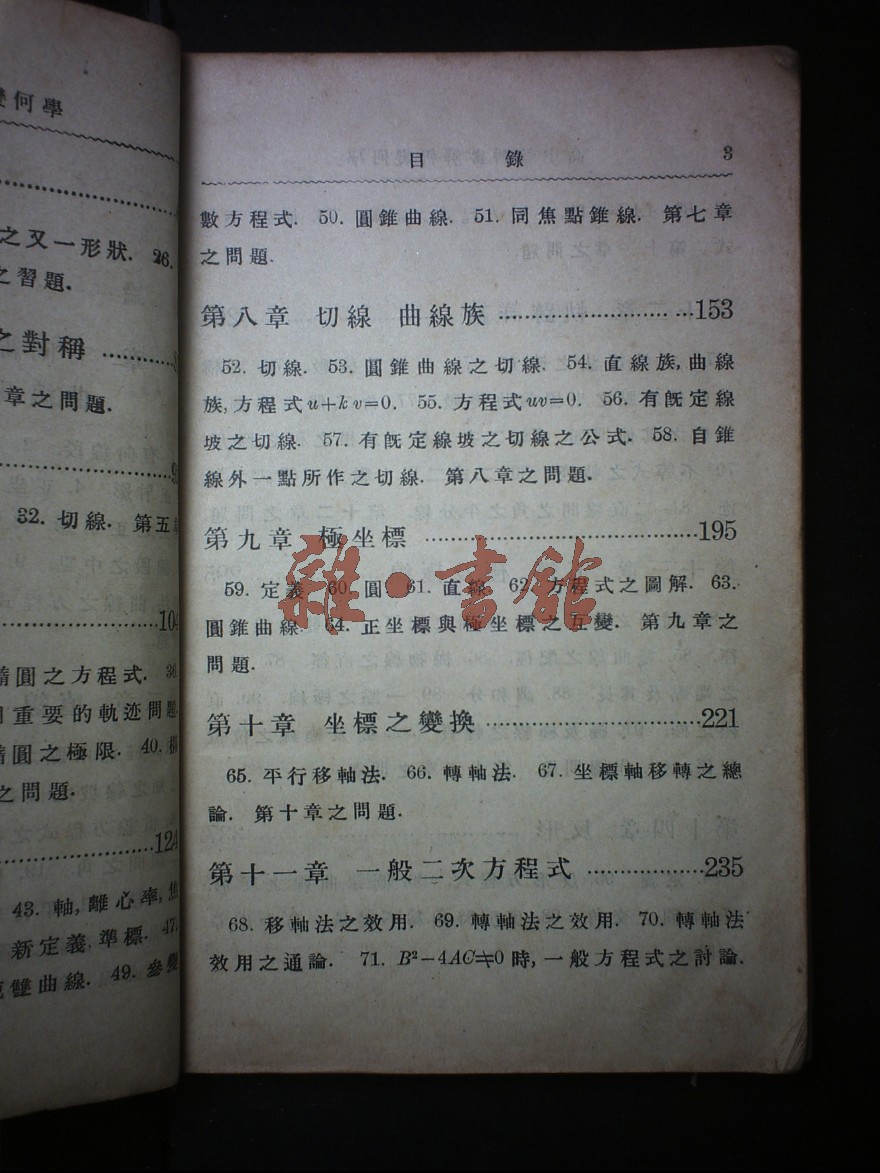 何學
之又一形狀. 26.
之習題.
之對稱
章之問題.
9
32. 切線. 第五章
104
橢圓之方程式. 36.
重要的軌迹問題
橢圓之極限. 40.
之問題.
124
43. 軸, 離心率, 焦
新定義, 準標. 47.
雙曲線. 49. 參變
目 錄 3
數方程式. 50. 圓錐曲線. 51. 同焦點錐線. 第七章
之問題.
第八章 切線 曲線族 ..............................153
52. 切線. 53. 圓錐曲線之切線. 54. 直線族, 曲線
族, 方程式u+kv=0. 55. 方程式uv=0. 56. 有旣定線
坡之切線. 57. 有旣定線坡之切線之公式. 58. 自錐
線外一點所作之切線. 第八章之問題.
第九章 極坐標 ..............................195
59. 定義 60. 圓 61. 直線 62. 方程式之圖解. 63.
圓錐曲線. 64. 正坐標與極坐標之互變. 第九章之
問題.
雜·書館
第十章 坐標之變換 ..............................221
65. 平行移軸法. 66. 轉軸法. 67. 坐標軸移轉之總
論. 第十章之問題.
第十一章 一般二次方程式 ..................235
68. 移軸法之效用. 69. 轉軸法之效用. 70. 轉軸法
效用之通論. 71. B²−4AC≠0時, 一般方程式之討論.